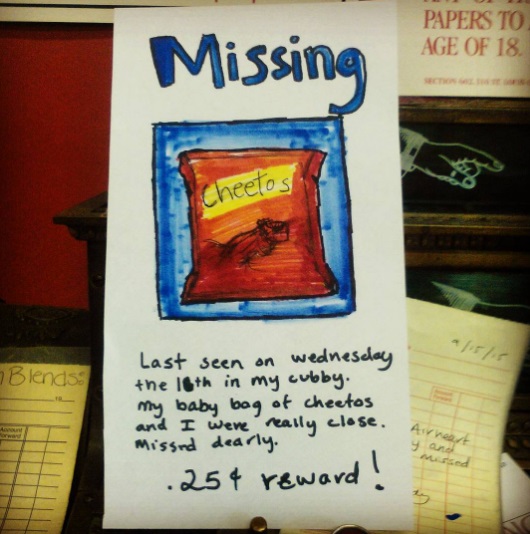 Missing
Cheetos
Last seen on wednesday
the 16th in my cubby.
my baby bag of cheetos
and I were really close.
Missnd dearly.
.25¢ reward!
PAPERS TO
AGE OF 18.
Blends
Account
Forward
9/15/15
Airheart
y and
missed